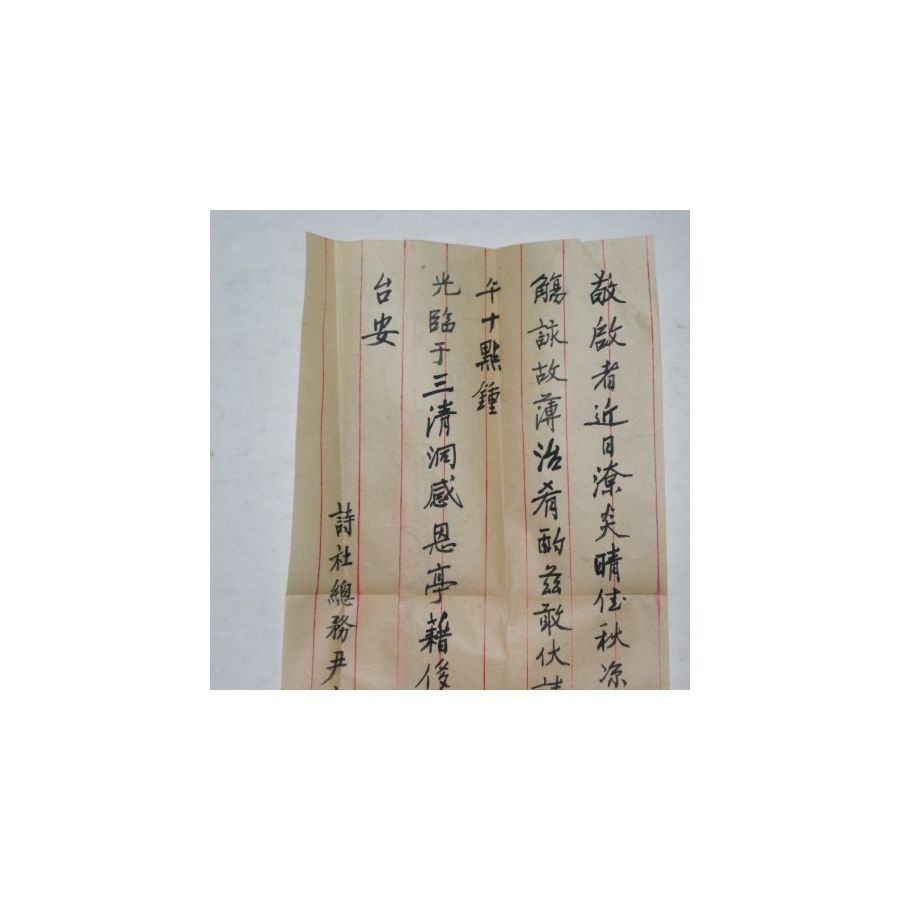 敬啟者近日潦炎晴佳秋凉
觴詠故薄治肴酌茲敢伏請
午十點鍾
光臨于三清洞感恩亭藉俊
台安
詩社總務尹